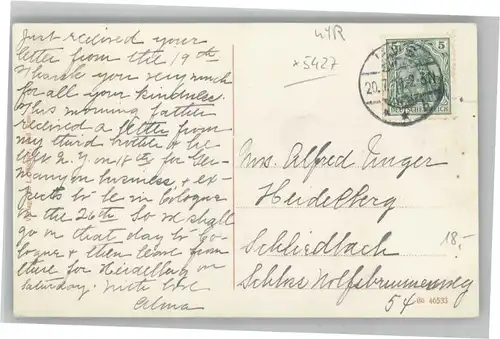 Just received your
letter from the 19th
Thank you very much
for all your kindness.
This morning father
received a letter from
my third brother he
left N. Y. on 18th for Ger-
many on business, & ex-
pects to be in Cologne
on the 26th So I shall
go on that day to Co-
logne & then leave from
there for Heidelberg on
Saturday. With love
Alma
*5427
5 5
DEUTSCHES REICH
20.7.
Mrs. Alfred Unger
Heidelberg
Schlierbach
Schloss Wolfsbrunnenweg
54
18,-
No 46533